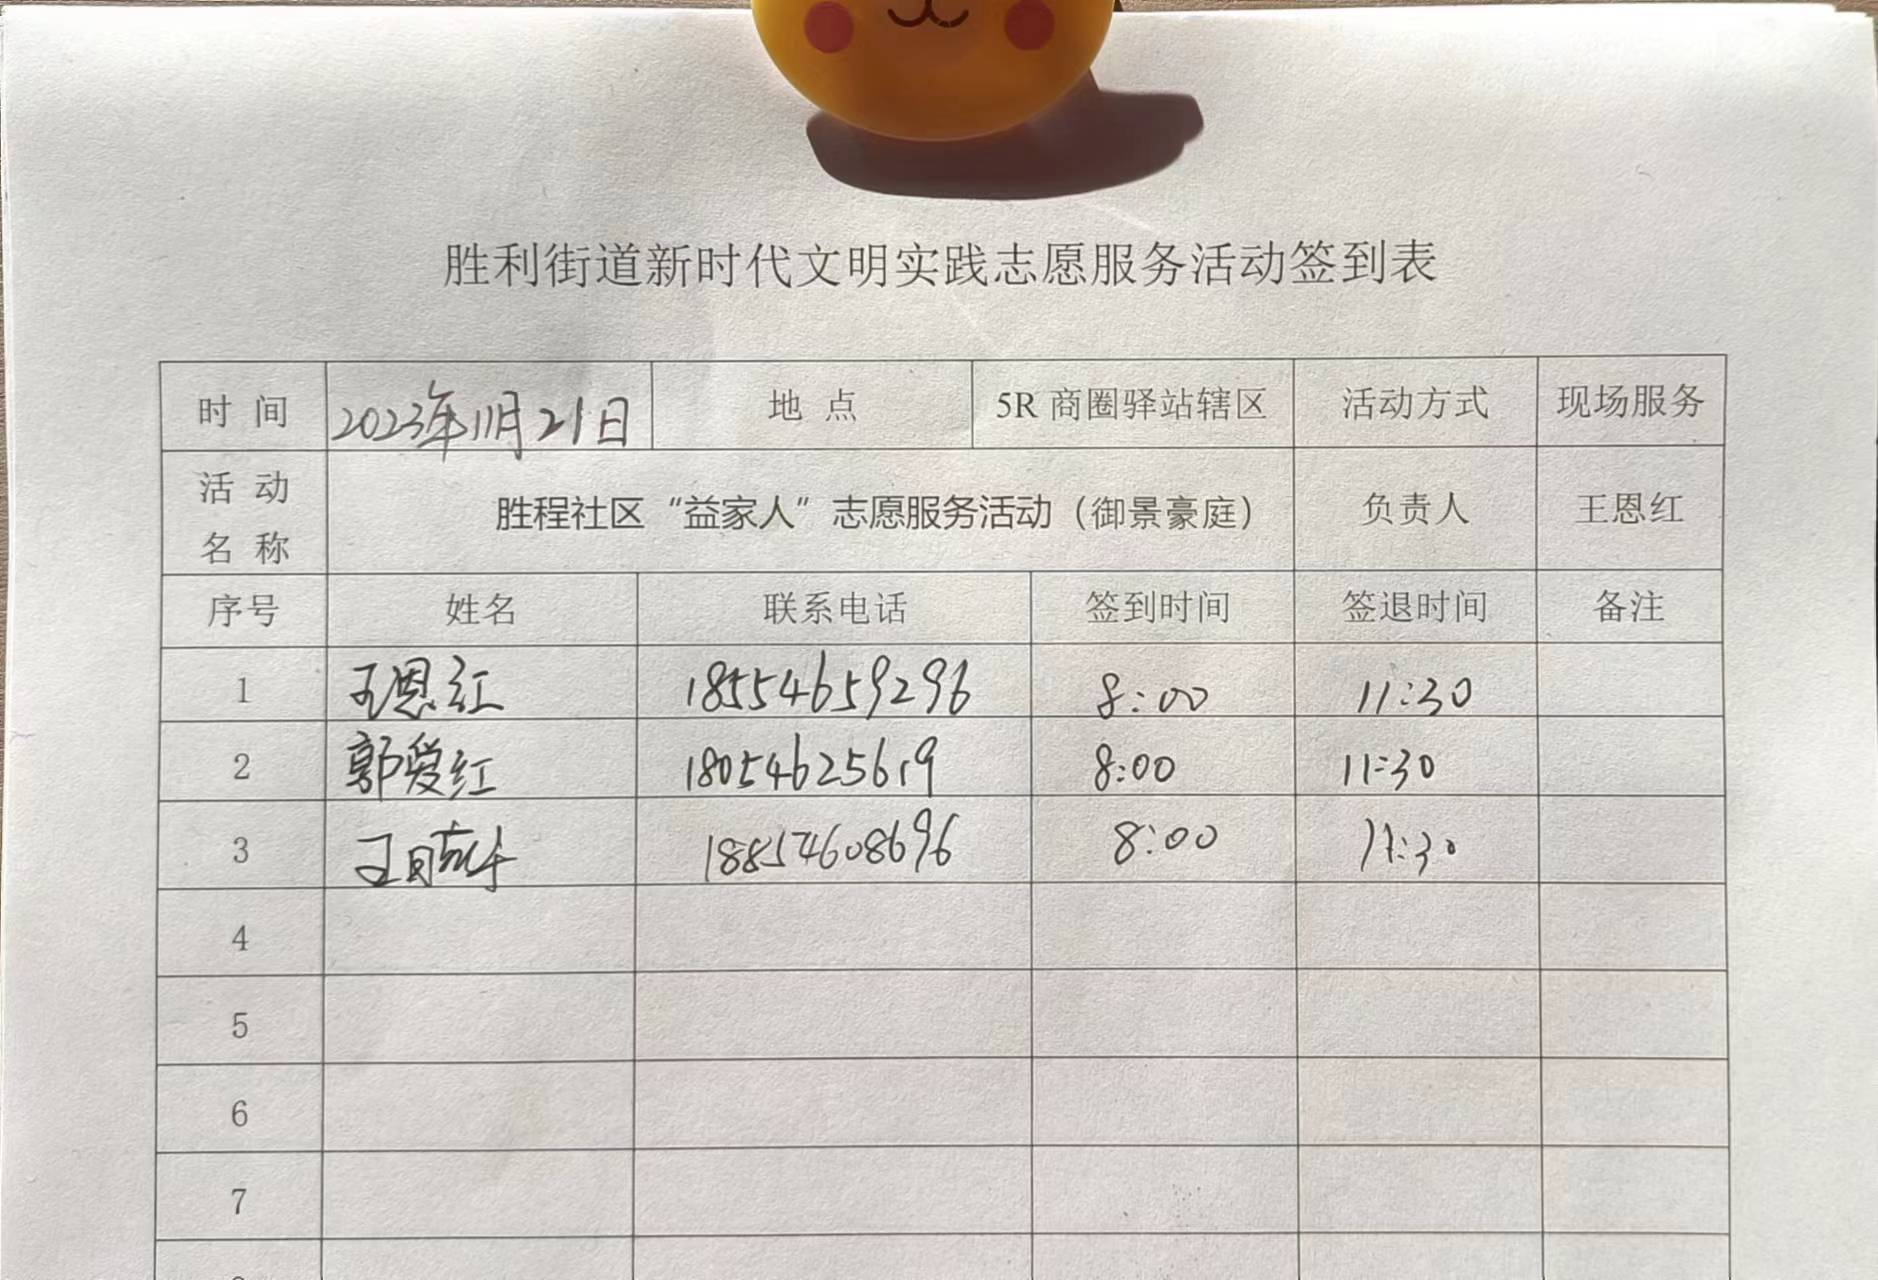 胜利街道新时代文明实践志愿服务活动签到表
时 间 2023年11月21日 地 点 5R 商圈驿站辖区 活动方式 现场服务
活 动
名 称 胜程社区“益家人”志愿服务活动（御景豪庭） 负责人 王恩红
序号 姓名 联系电话 签到时间 签退时间 备注
1 王恩红 18554659296 8:00 11:30
2 郭爱红 18054625619 8:00 11:30
3 18854608696 8:00 11:30
4
5
6
7